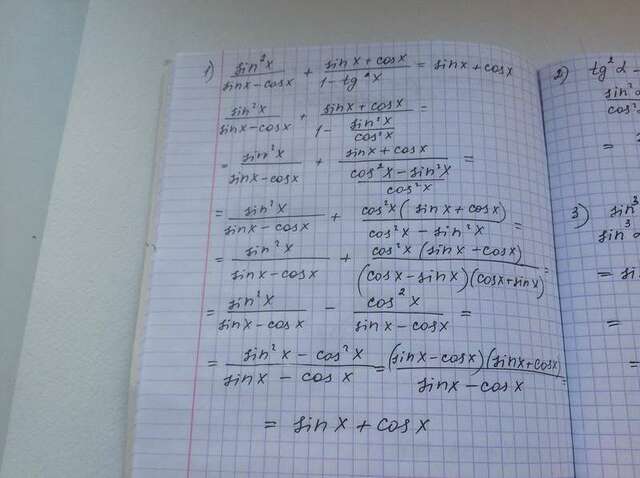 1) sin²x / (sinx - cosx) + (sinx + cosx) / (1 - tg²x) = sinx + cosx
sin²x / (sinx - cosx) + (sinx + cosx) / (1 - sin²x / cos²x) =
= sin²x / (sinx - cosx) + (sinx + cosx) / ((cos²x - sin²x) / cos²x) =
= sin²x / (sinx - cosx) + cos²x (sinx + cosx) / (cos²x - sin²x) =
= sin²x / (sinx - cosx) + cos²x (sinx + cosx) / ((cosx - sinx)(cosx + sinx)) =
= sin²x / (sinx - cosx) - cos²x / (sinx - cosx) =
= (sin²x - cos²x) / (sinx - cosx) = (sinx - cosx)(sinx + cosx) / (sinx - cosx) =
= sinx + cosx
2) tg²α -
sin²
cos²
=
3) sin³
sin³
= si
=
=